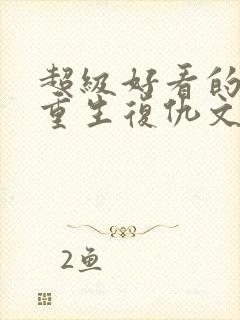 超级好看的
重生復仇文
2鱼